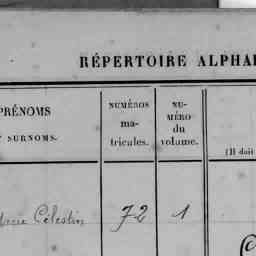 RÉPERTOIRE ALPHA
PRÉNOMS
SURNOMS.
NUMÉROS
ma-
tricules.
NU-
MÉRO
du
volume.
(Il doit
Célestin 72 1